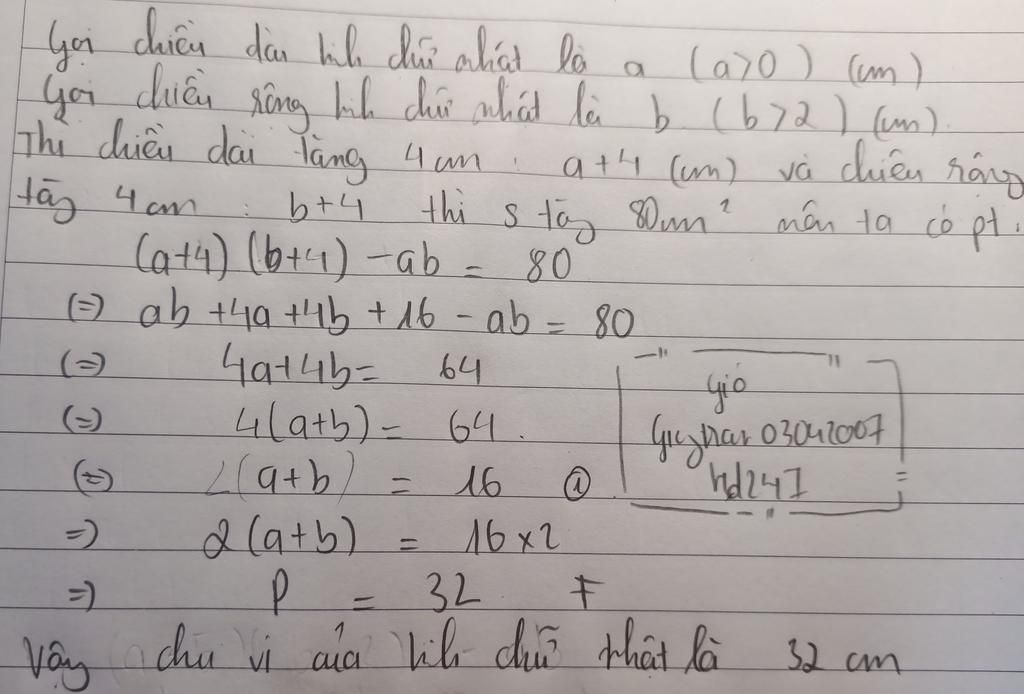 Gọi chiều dài hìh chữ nhất là a (a>0) (cm)
Gọi chiều rộng hìh chữ nhật là b (b>2) (cm).
Thì chiều dài tăng 4cm : a+4 (cm) và chiều rộng
tăg 4cm : b+4 thì S tăg 80cm² nên ta có pt:
(a+4) (b+4) -ab = 80
(=) ab +4a+4b+16 - ab = 80
(=) 4a+4b= 64
(=) 4(a+b) = 64.
(=) (a+b) = 16 @
=) 2(a+b) = 16 x 2
=) P = 32
Vậy chu vi của hìh chữ nhật là 32 cm
Gió
03042007
hd247